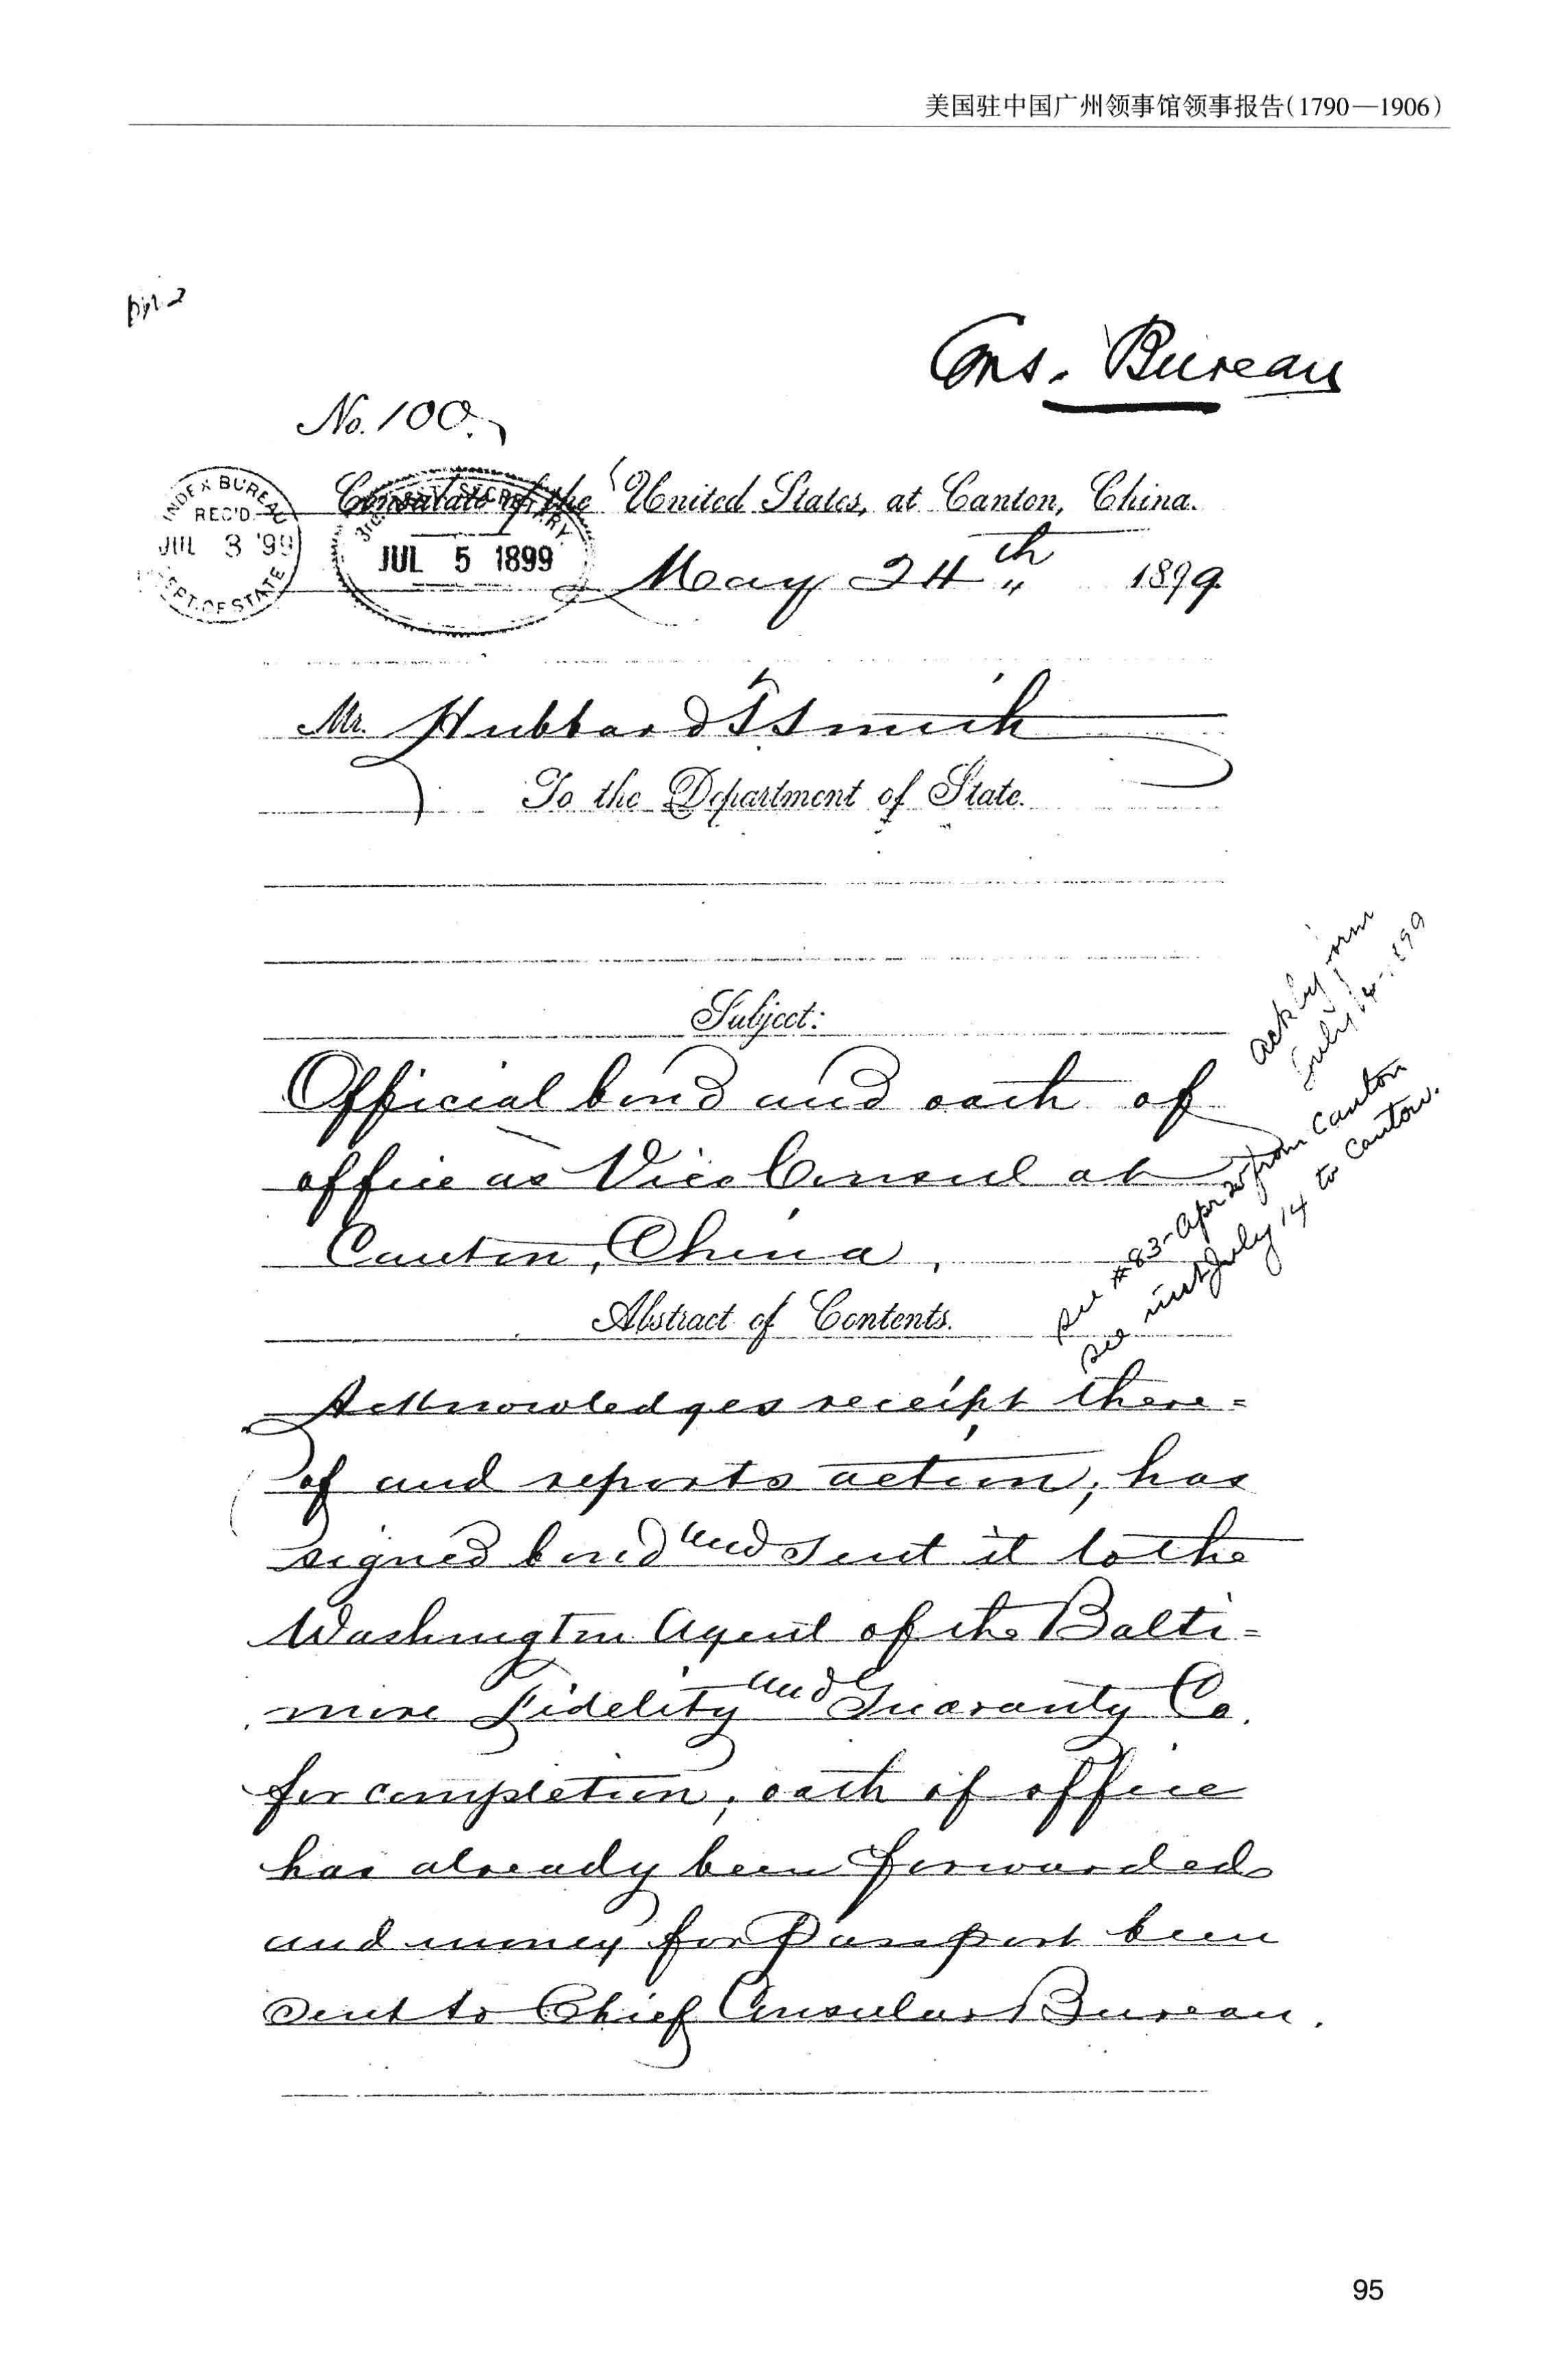 美国驻中国广州领事馆领事报告(1790—1906)
Cons. Bureau
No. 100.
INDEX BUREAU
REC'D
JUL 3 '99
DEPT. OF STATE
Consulate of the United States, at Canton, China.
JUL 5 1899
May 24th 1899
Mr. Hubbard T. Smith
To the Department of State.
Subject:
Official bond and oath of
office as Vice Consul at
Canton, China.
ack by form
July 14-'99
see #83-Apr 20 from Canton
see inst July 14 to Canton.
Abstract of Contents.
Acknowledges receipt there=
of and reports action; has
signed bond and sent it to the
Washington Agent of the Balti=
more Fidelity and Guaranty Co.
for completion; oath of office
has already been forwarded
and money for Passport been
sent to Chief Consular Bureau.
95